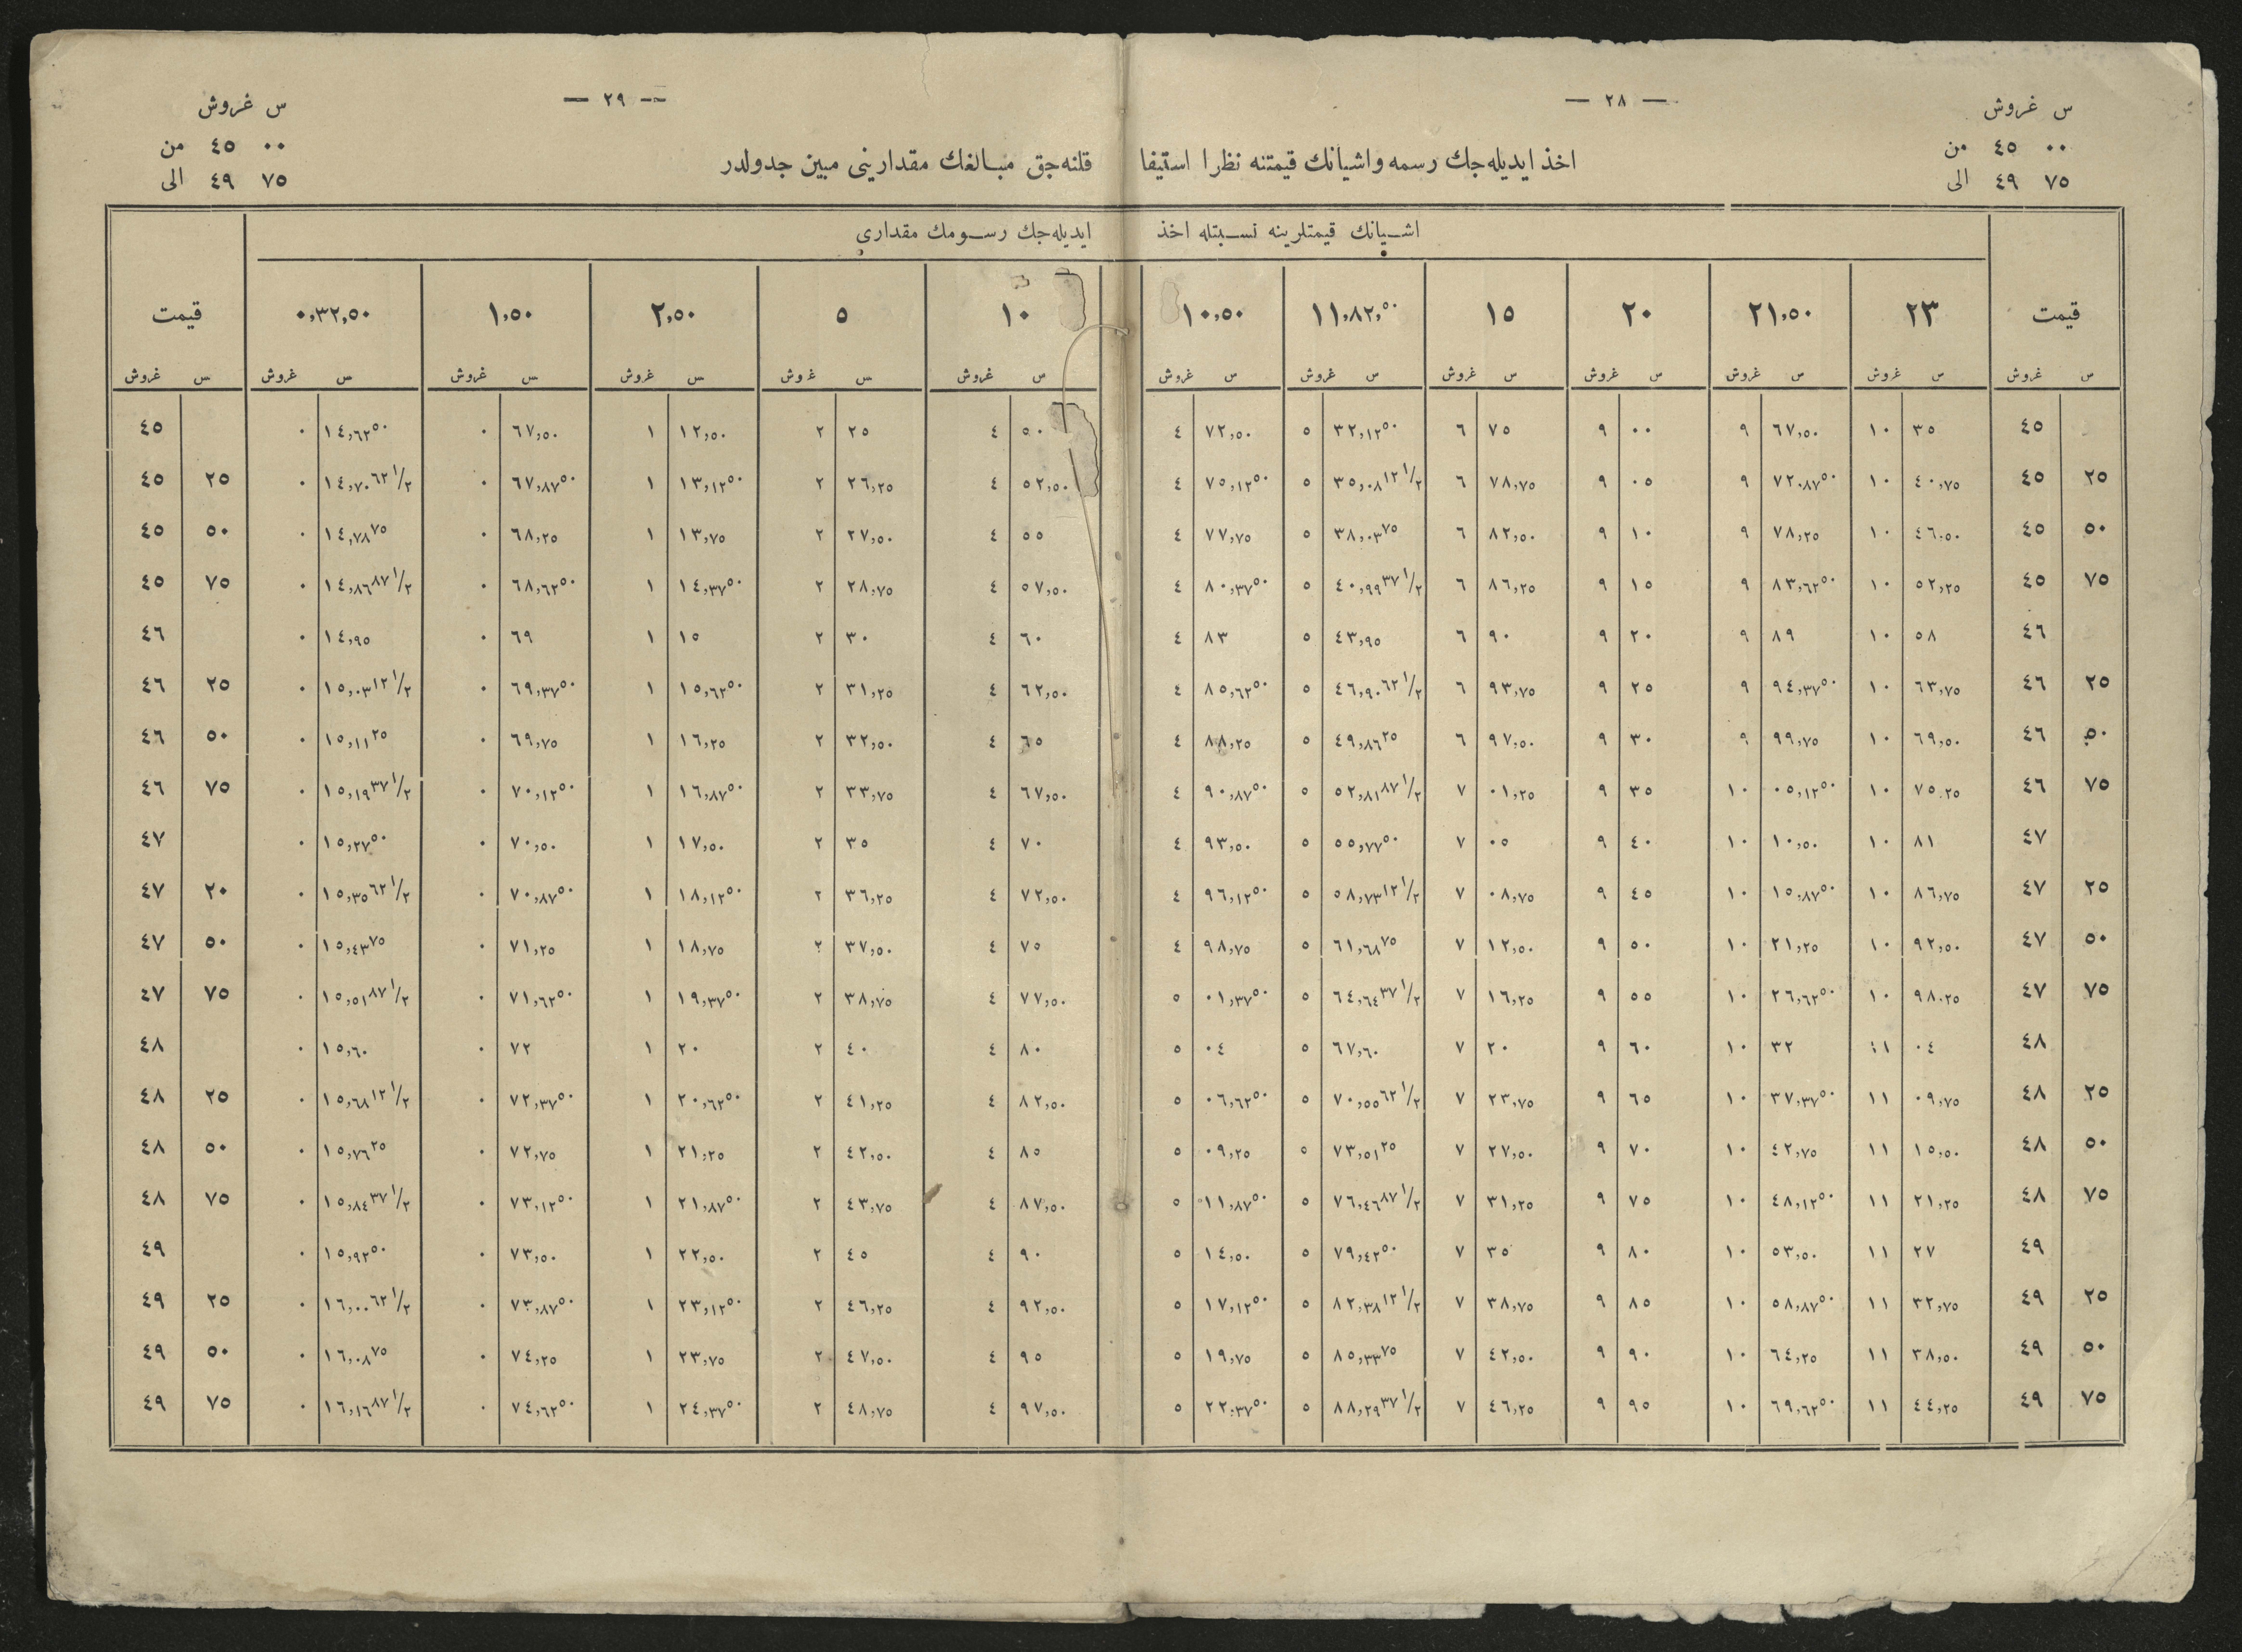 — ٢٨ —
س غروش
٠٠ ٤٥ من
٧٥ ٤٩ الى
— ٢٩ —
س غروش
٠٠ ٤٥ من
٧٥ ٤٩ الى
اخذ ایدیله‌جك رسمه و اشیانك قیمتنه نظرا استیفا قلنه‌جق مبالغك مقدارینی مبین جدولدر
اشیانك قیمتلرینه نسبتله اخذ ایدیله‌جك رسومك مقداری
قیمت ٢٣ ٢١,٥٠ ٢٠ ١٥ ١١,٨٢,٥٠ ١٠,٥٠ ١٠ ٥ ٢,٥٠ ١,٥٠ ٠,٣٢,٥٠ قیمت
س غروش س غروش س غروش س غروش س غروش س غروش س غروش س غروش س غروش س غروش س غروش س غروش س غروش
٤٥ ٣٥ ١٠ ٦٧,٥٠ ٩ ٠٠ ٩ ٧٥ ٦ ٣٢,١٢٥٠ ٥ ٧٢,٥٠ ٤ ٥٠ ٤ ٢٥ ٢ ١٢,٥٠ ١ ٦٧,٥٠ ٠ ١٤,٦٢٥٠ ٠ ٤٥
٢٥ ٤٥ ٤٠,٧٥ ١٠ ٧٢,٨٧٥٠ ٩ ٠٥ ٩ ٧٨,٧٥ ٦ ٣٥,٠٨١٢ ١/٢ ٥ ٧٥,١٢٥٠ ٤ ٥٢,٥٠ ٤ ٢٦,٢٥ ٢ ١٣,١٢٥٠ ١ ٦٧,٨٧٥٠ ٠ ١٤,٧٠٦٢ ١/٢ ٠ ٢٥ ٤٥
٥٠ ٤٥ ٤٦,٥٠ ١٠ ٧٨,٢٥ ٩ ١٠ ٩ ٨٢,٥٠ ٦ ٣٨,٠٣٧٥ ٥ ٧٧,٧٥ ٤ ٥٥ ٤ ٢٧,٥٠ ٢ ١٣,٧٥ ١ ٦٨,٢٥ ٠ ١٤,٧٨٧٥ ٠ ٥٠ ٤٥
٧٥ ٤٥ ٥٢,٢٥ ١٠ ٨٣,٦٢٥٠ ٩ ١٥ ٩ ٨٦,٢٥ ٦ ٤٠,٩٩٣٧ ١/٢ ٥ ٨٠,٣٧٥٠ ٤ ٥٧,٥٠ ٤ ٢٨,٧٥ ٢ ١٤,٣٧٥٠ ١ ٦٨,٦٢٥٠ ٠ ١٤,٨٦٨٧ ١/٢ ٠ ٧٥ ٤٥
٤٦ ٥٨ ١٠ ٨٩ ٩ ٢٠ ٩ ٩٠ ٦ ٤٣,٩٥ ٥ ٨٣ ٤ ٦٠ ٤ ٣٠ ٢ ١٥ ١ ٦٩ ٠ ١٤,٩٥ ٠ ٤٦
٢٥ ٤٦ ٦٣,٧٥ ١٠ ٩٤,٣٧٥٠ ٩ ٢٥ ٩ ٩٣,٧٥ ٦ ٤٦,٩٠٦٢ ١/٢ ٥ ٨٥,٦٢٥٠ ٤ ٦٢,٥٠ ٤ ٣١,٢٥ ٢ ١٥,٦٢٥٠ ١ ٦٩,٣٧٥٠ ٠ ١٥,٠٣١٢ ١/٢ ٠ ٢٥ ٤٦
٥٠ ٤٦ ٦٩,٥٠ ١٠ ٩٩,٧٥ ٩ ٣٠ ٩ ٩٧,٥٠ ٦ ٤٩,٨٦٢٥ ٥ ٨٨,٢٥ ٤ ٦٥ ٤ ٣٢,٥٠ ٢ ١٦,٢٥ ١ ٦٩,٧٥ ٠ ١٥,١١٢٥ ٠ ٥٠ ٤٦
٧٥ ٤٦ ٧٥,٢٥ ١٠ ٠٥,١٢٥٠ ١٠ ٣٥ ٩ ٠١,٢٥ ٧ ٥٢,٨١٨٧ ١/٢ ٥ ٩٠,٨٧٥٠ ٤ ٦٧,٥٠ ٤ ٣٣,٧٥ ٢ ١٦,٨٧٥٠ ١ ٧٠,١٢٥٠ ٠ ١٥,١٩٣٧ ١/٢ ٠ ٧٥ ٤٦
٤٧ ٨١ ١٠ ١٠,٥٠ ١٠ ٤٠ ٩ ٠٥ ٧ ٥٥,٧٧٥٠ ٥ ٩٣,٥٠ ٤ ٧٠ ٤ ٣٥ ٢ ١٧,٥٠ ١ ٧٠,٥٠ ٠ ١٥,٢٧٥٠ ٠ ٤٧
٢٥ ٤٧ ٨٦,٧٥ ١٠ ١٥,٨٧٥٠ ١٠ ٤٥ ٩ ٠٨,٧٥ ٧ ٥٨,٧٣١٢ ١/٢ ٥ ٩٦,١٢٥٠ ٤ ٧٢,٥٠ ٤ ٣٦,٢٥ ٢ ١٨,١٢٥٠ ١ ٧٠,٨٧٥٠ ٠ ١٥,٣٥٦٢ ١/٢ ٠ ٢٠ ٤٧
٥٠ ٤٧ ٩٢,٥٠ ١٠ ٢١,٢٥ ١٠ ٥٠ ٩ ١٢,٥٠ ٧ ٦١,٦٨٧٥ ٥ ٩٨,٧٥ ٤ ٧٥ ٤ ٣٧,٥٠ ٢ ١٨,٧٥ ١ ٧١,٢٥ ٠ ١٥,٤٣٧٥ ٠ ٥٠ ٤٧
٧٥ ٤٧ ٩٨,٢٥ ١٠ ٢٦,٦٢٥٠ ١٠ ٥٥ ٩ ١٦,٢٥ ٧ ٦٤,٦٤٣٧ ١/٢ ٥ ٠١,٣٧٥٠ ٥ ٧٧,٥٠ ٤ ٣٨,٧٥ ٢ ١٩,٣٧٥٠ ١ ٧١,٦٢٥٠ ٠ ١٥,٥١٨٧ ١/٢ ٠ ٧٥ ٤٧
٤٨ ٠٤ ١١ ٣٢ ١٠ ٦٠ ٩ ٢٠ ٧ ٦٧,٦٠ ٥ ٠٤ ٥ ٨٠ ٤ ٤٠ ٢ ٢٠ ١ ٧٢ ٠ ١٥,٦٠ ٠ ٤٨
٢٥ ٤٨ ٠٩,٧٥ ١١ ٣٧,٣٧٥٠ ١٠ ٦٥ ٩ ٢٣,٧٥ ٧ ٧٠,٥٥٦٢ ١/٢ ٥ ٠٦,٦٢٥٠ ٥ ٨٢,٥٠ ٤ ٤١,٢٥ ٢ ٢٠,٦٢٥٠ ١ ٧٢,٣٧٥٠ ٠ ١٥,٦٨١٢ ١/٢ ٠ ٢٥ ٤٨
٥٠ ٤٨ ١٥,٥٠ ١١ ٤٢,٧٥ ١٠ ٧٠ ٩ ٢٧,٥٠ ٧ ٧٣,٥١٢٥ ٥ ٠٩,٢٥ ٥ ٨٥ ٤ ٤٢,٥٠ ٢ ٢١,٢٥ ١ ٧٢,٧٥ ٠ ١٥,٧٦٢٥ ٠ ٥٠ ٤٨
٧٥ ٤٨ ٢١,٢٥ ١١ ٤٨,١٢٥٠ ١٠ ٧٥ ٩ ٣١,٢٥ ٧ ٧٦,٤٦٨٧ ١/٢ ٥ ١١,٨٧٥٠ ٥ ٨٧,٥٠ ٤ ٤٣,٧٥ ٢ ٢١,٨٧٥٠ ١ ٧٣,١٢٥٠ ٠ ١٥,٨٤٣٧ ١/٢ ٠ ٧٥ ٤٨
٤٩ ٢٧ ١١ ٥٣,٥٠ ١٠ ٨٠ ٩ ٣٥ ٧ ٧٩,٤٢٥٠ ٥ ١٤,٥٠ ٥ ٩٠ ٤ ٤٥ ٢ ٢٢,٥٠ ١ ٧٣,٥٠ ٠ ١٥,٩٢٥٠ ٠ ٤٩
٢٥ ٤٩ ٣٢,٧٥ ١١ ٥٨,٨٧٥٠ ١٠ ٨٥ ٩ ٣٨,٧٥ ٧ ٨٢,٣٨١٢ ١/٢ ٥ ١٧,١٢٥٠ ٥ ٩٢,٥٠ ٤ ٤٦,٢٥ ٢ ٢٣,١٢٥٠ ١ ٧٣,٨٧٥٠ ٠ ١٦,٠٠٦٢ ١/٢ ٠ ٢٥ ٤٩
٥٠ ٤٩ ٣٨,٥٠ ١١ ٦٤,٢٥ ١٠ ٩٠ ٩ ٤٢,٥٠ ٧ ٨٥,٣٣٧٥ ٥ ١٩,٧٥ ٥ ٩٥ ٤ ٤٧,٥٠ ٢ ٢٣,٧٥ ١ ٧٤,٢٥ ٠ ١٦,٠٨٧٥ ٠ ٥٠ ٤٩
٧٥ ٤٩ ٤٤,٢٥ ١١ ٦٩,٦٢٥٠ ١٠ ٩٥ ٩ ٤٦,٢٥ ٧ ٨٨,٢٩٣٧ ١/٢ ٥ ٢٢,٣٧٥٠ ٥ ٩٧,٥٠ ٤ ٤٨,٧٥ ٢ ٢٤,٣٧٥٠ ١ ٧٤,٦٢٥٠ ٠ ١٦,١٦٨٧ ١/٢ ٠ ٧٥ ٤٩